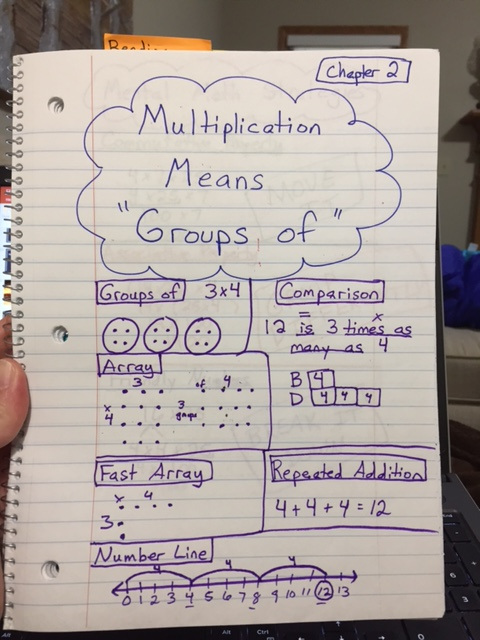 Readin
Chapter 2
Multiplication
Means
"Groups of"
Groups of 3x4
Comparison
= x
12 is 3 times as
many as 4
B 4
D 4 4 4
Array
3
x
4
of 4
3
groups
Fast Array
x 4
3
Repeated Addition
4+4+4=12
Number Line
4 4 4
0 1 2 3 4 5 6 7 8 9 10 11 12 13
Alt Ctrl